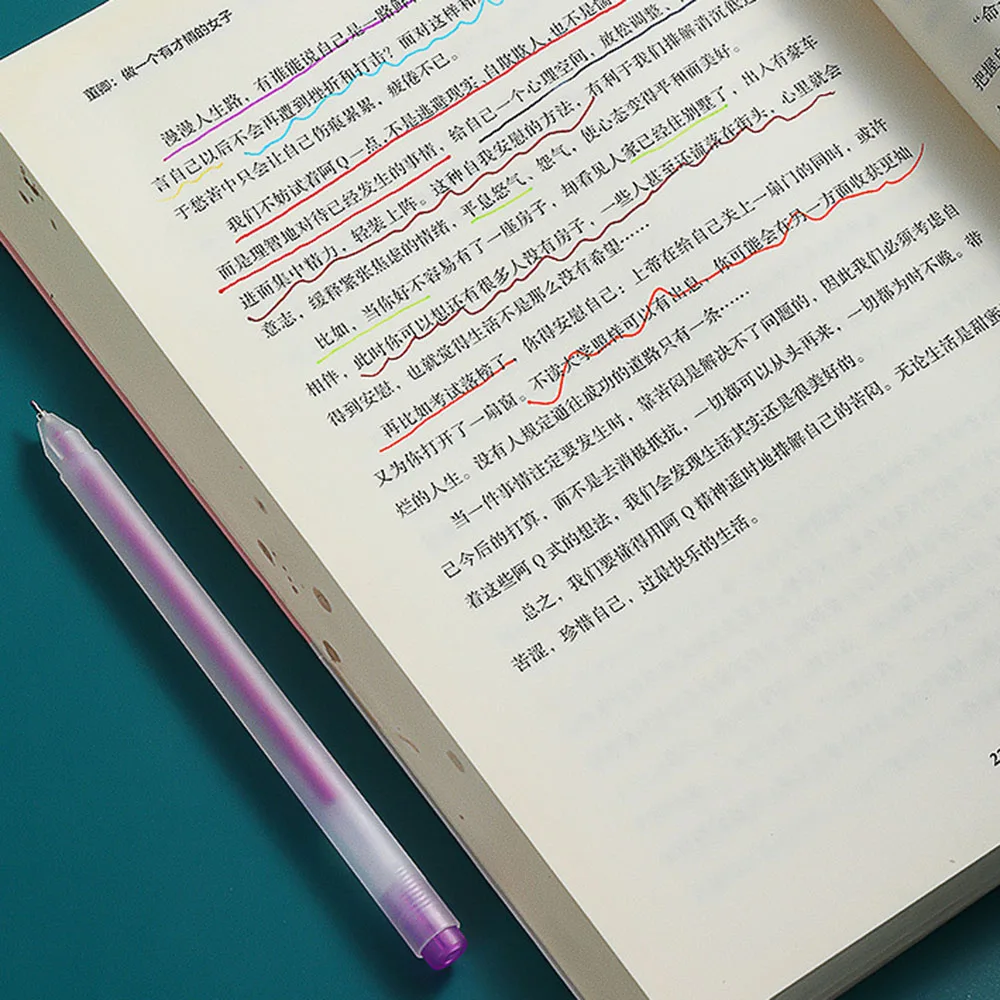 董卿：做一个有才情的女子
漫漫人生路，有谁能说自己是一路鲜
言自己以后不会再遭到挫折和打击？面对这样和
于愁苦中只会让自己伤痕累累，疲倦不已。
我们不妨试着阿Q一点，不是逃避现实、自欺欺人，也不是懦
而是理智地对待已经发生的事情，给自己一个心理空间，放松调整、
进而集中精力，轻装上阵。这种自我安慰的方法，有利于我们排解消沉
意志，缓释紧张焦虑的情绪，平息怒气、怨气，使心态变得平和而美好。
比如，当你好不容易有了一座房子，却看见人家已经住别墅了，出入有豪车
相伴，此时你可以想还有很多人没有房子，一些人甚至还流落在街头，心里就会
得到安慰，也就觉得生活不是那么没有希望……
再比如考试落榜了，你得安慰自己：上帝在给自己关上一扇门的同时，或许
又为你打开了一扇窗。不读大学照样可以有出息，你可能会在另一方面收获更灿
烂的人生。没有人规定通往成功的道路只有一条……
当一件事情注定要发生时，靠苦闷是解决不了问题的，因此我们必须考虑自
己今后的打算，而不是去消极抵抗，一切都可以从头再来，一切都为时不晚。带
着这些阿 Q 式的想法，我们会发现生活其实还是很美好的。
总之，我们要懂得用阿 Q 精神适时地排解自己的苦闷。无论生活是甜蜜
苦涩，珍惜自己，过最快乐的生活。
“命
把握